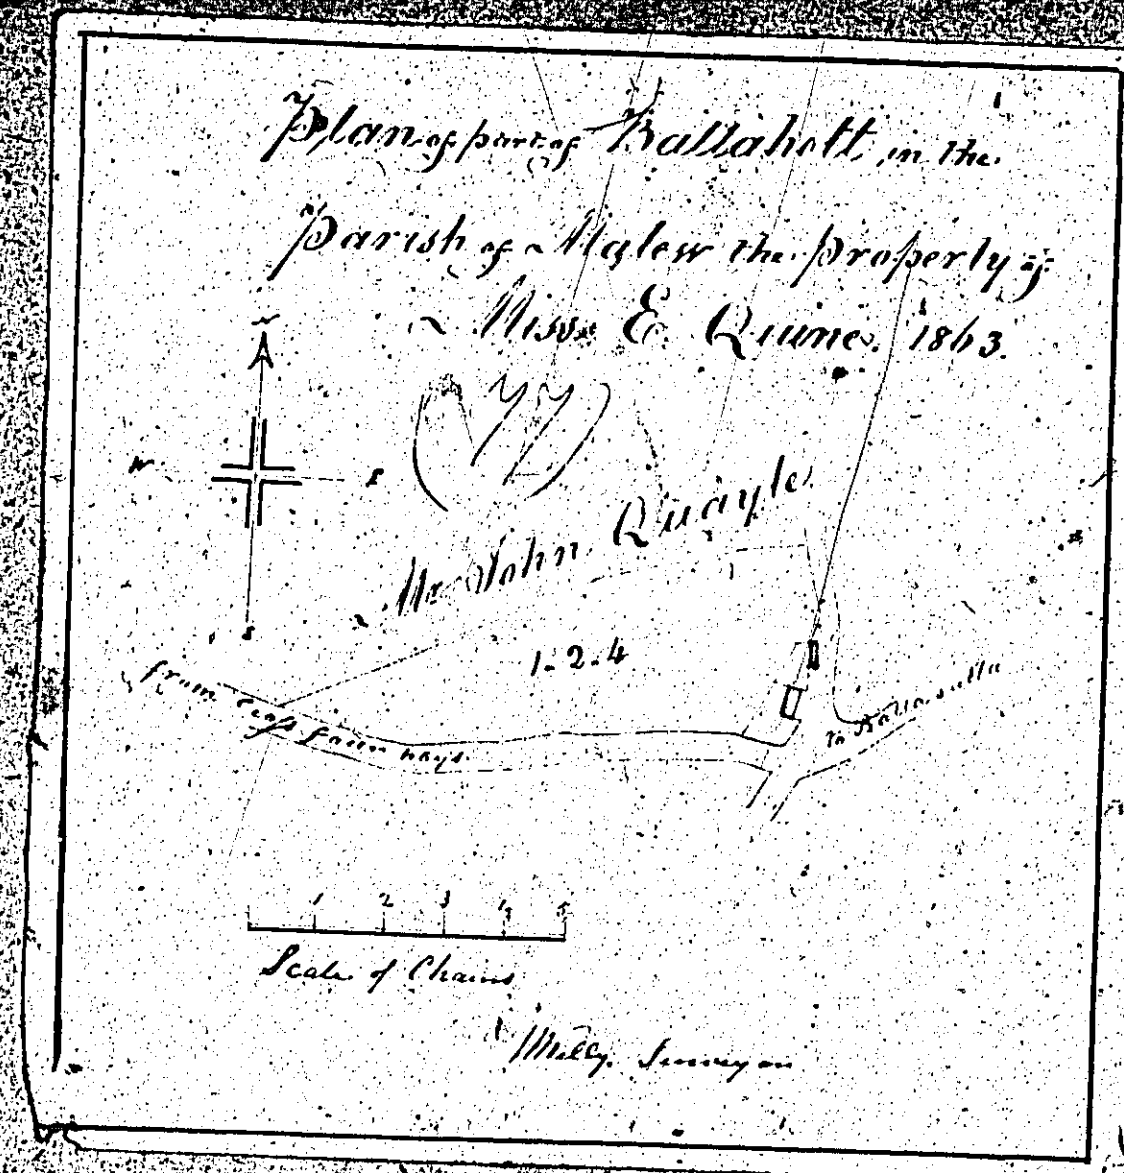 Plan of part of Ballahott in the
Parish of Malew the Property of
Miss E. Quine. 1863.
N
W E
S
Mr John Quayle
1-2-4
from Cross four ways
To Ballasalla
1 2 3 4 5
Scale of Chains
Surveyor